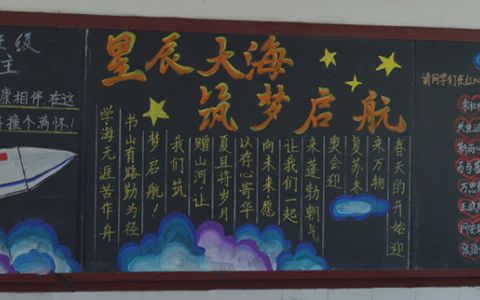 级
主
康相伴,在这
撞个满怀!
星辰大海
筑梦启航
春天的开始迎
来万物
复苏冬
奥会迎
来蓬勃朝气
让我们一起
向未来愿
以存心寄华
夏且将岁月
赠山河,让
我们筑
梦启航!
书山有路勤为径
学海无涯苦作舟
请同学们在红